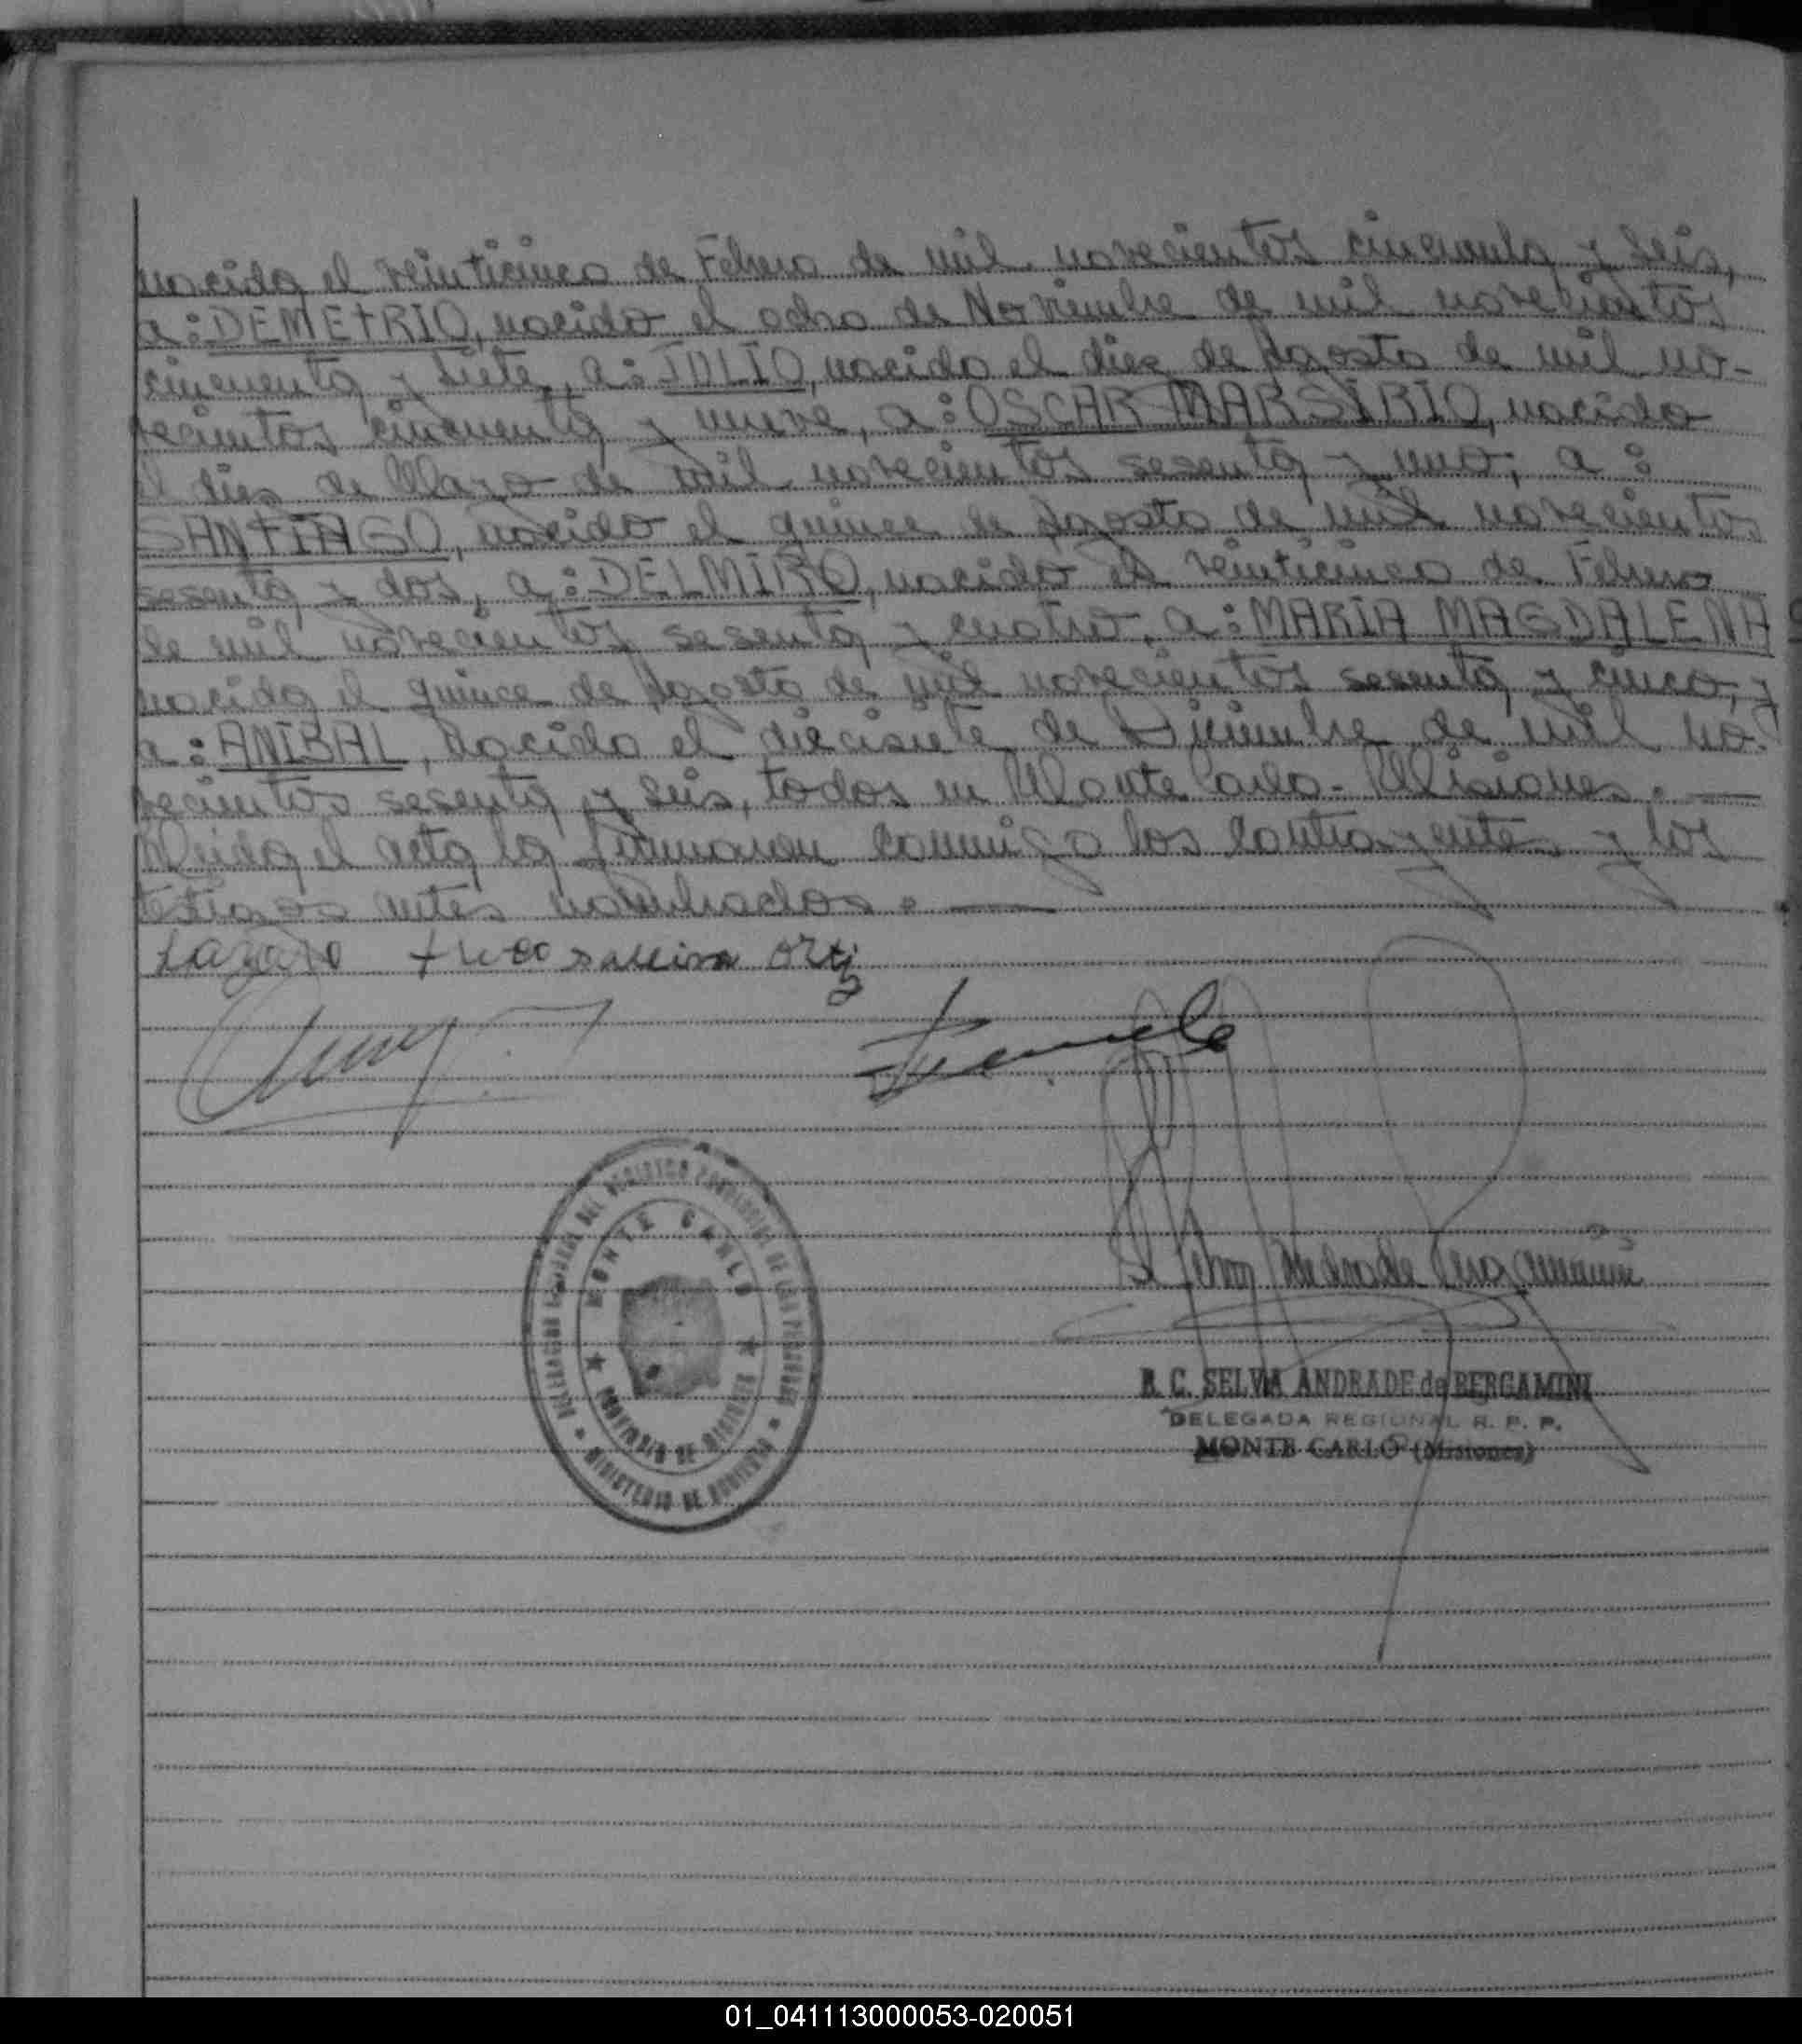 nacida el veinticinco de Febrero de mil novecientos cincuenta y seis,
a: DEMETRIO, nacido el ocho de Noviembre de mil novecientos
cincuenta y siete, a: JULIO, nacido el diez de Agosto de mil no-
vecientos cincuenta y nueve, a: OSCAR MARSIRIO, nacido
el dies de Marzo de mil novecientos sesenta y uno, a:
SANTIAGO, nacido el quince de Agosto de mil novecientos
sesenta y dos, a: DELMIRO, nacido el veinticinco de Febrero
de mil novecientos sesenta y cuatro, a: MARIA MAGDALENA
nacida el quince de Agosto de mil novecientos sesenta y cinco, y
a: ANIBAL, nacido el diecisiete de Diciembre de mil no-
vecientos sesenta y seis, todos en Monte Carlo - Misiones. —
Leida el acta la firmaron conmigo los contrayentes y los
testigos antes nombrados. —
Lazaro
Ortiz
DELEGACION REGIONAL DEL REGISTRO PROVINCIAL DE LAS PERSONAS
MONTE CARLO
★ PROVINCIA DE MISIONES ★
MINISTERIO DE GOBIERNO
Selva Andrade Bergamini
B. C. SELVA ANDRADE de BERGAMINI
DELEGADA REGIONAL R. P. P.
MONTE CARLO (Misiones)
01_041113000053-020051